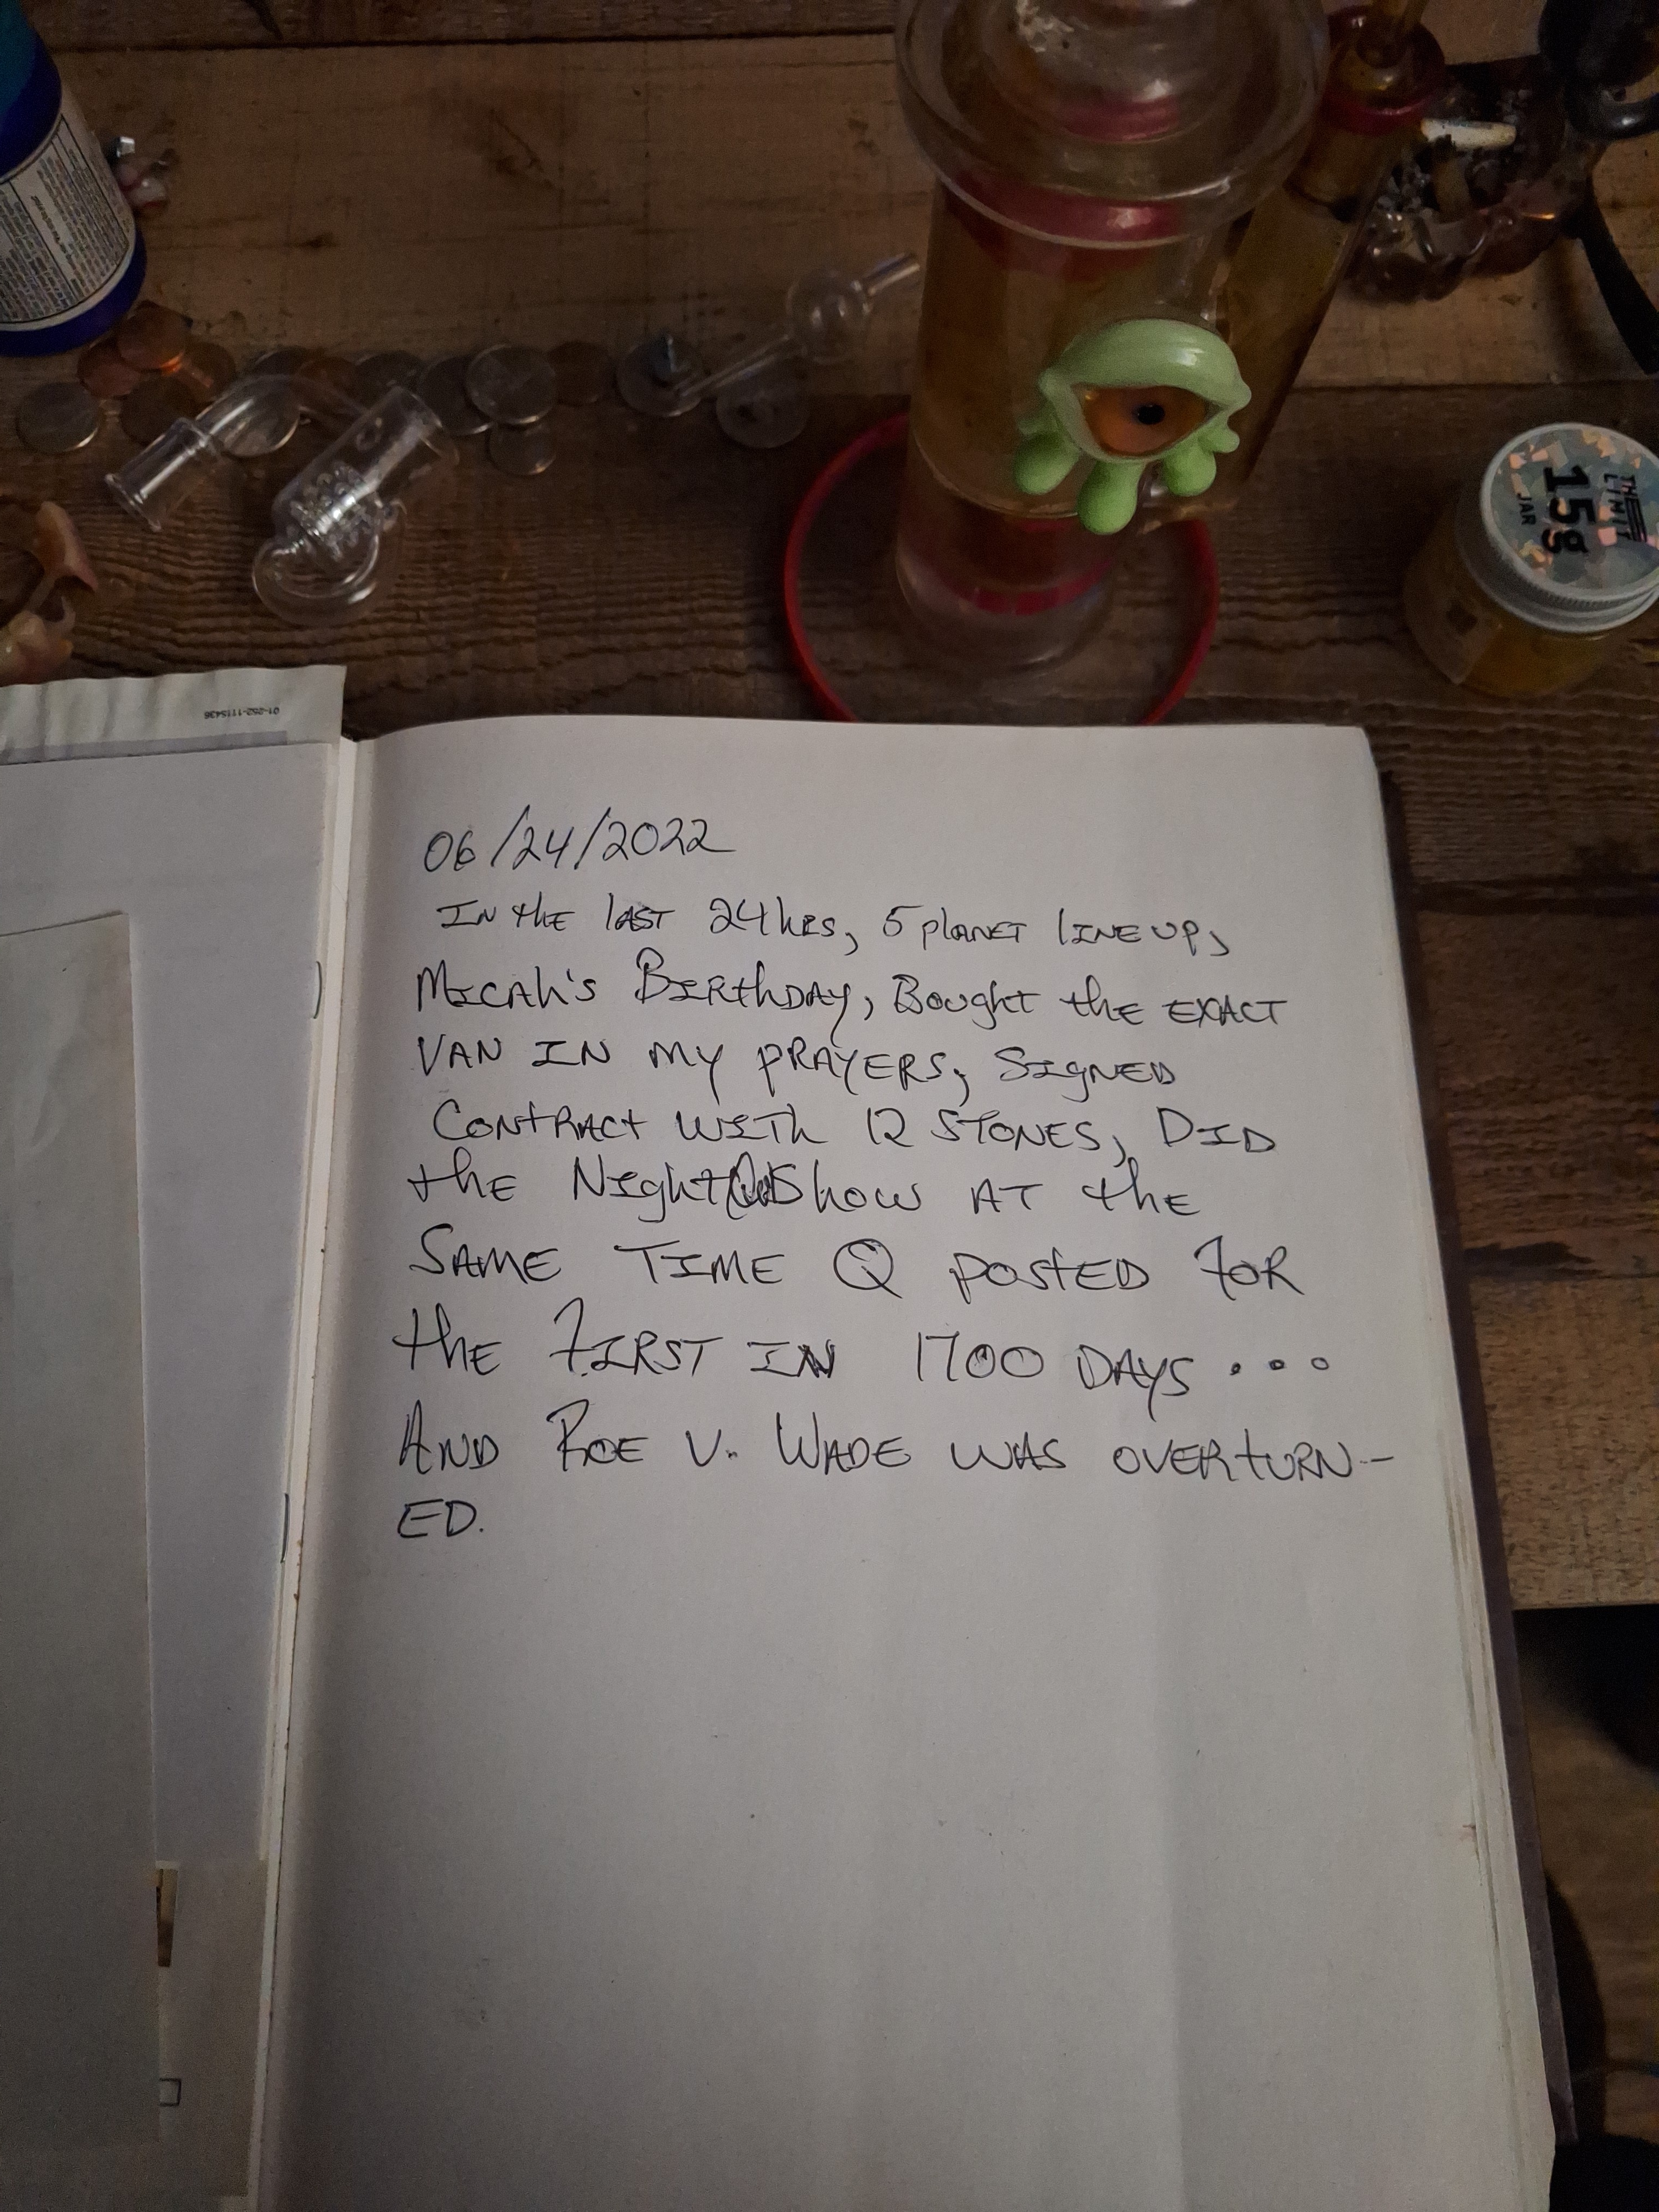 THE LIMIT
15g
JAR
01-252-1115436
06/24/2022
IN the lAST 24hRS, 5 PLANET LINE UP,
MICAh'S BIRthDAY, BOUghT thE EXACT
VAN IN MY PRAYERS, SIGNED
CONtRACt WITh 12 STONES, DID
thE NIghT Show AT thE
SAME TIME Q POStED FOR
thE FIRST IN 1700 DAYS . . .
AND ROE V. WADE WAS OVERtURN-
ED.